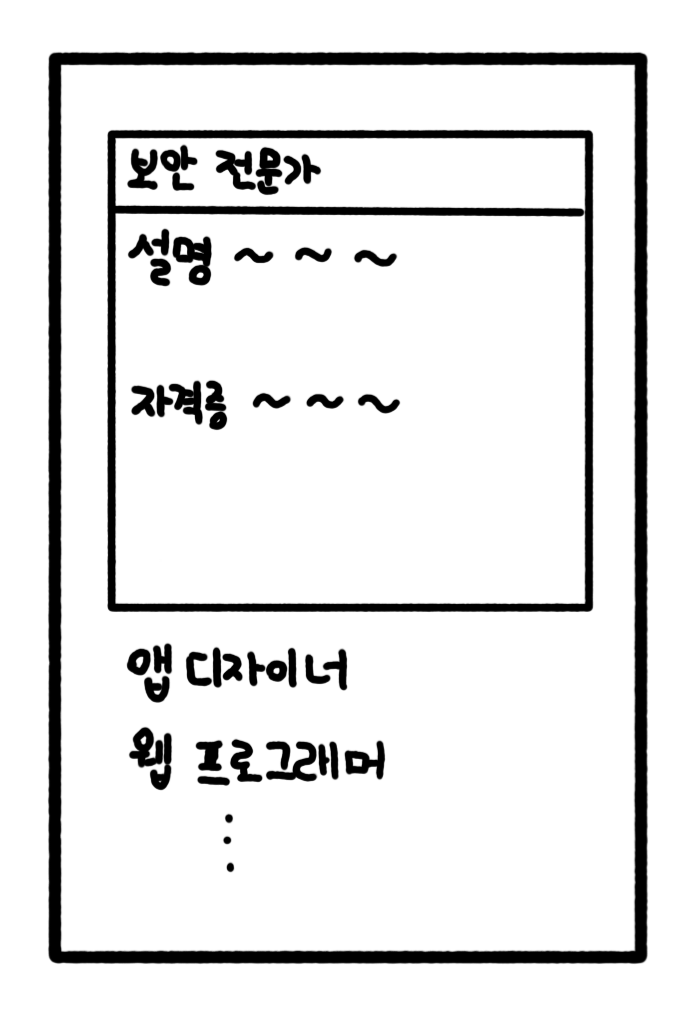 보안 전문가
설명 ~ ~ ~
자격증 ~ ~ ~
앱 디자이너
웹 프로그래머
⋮